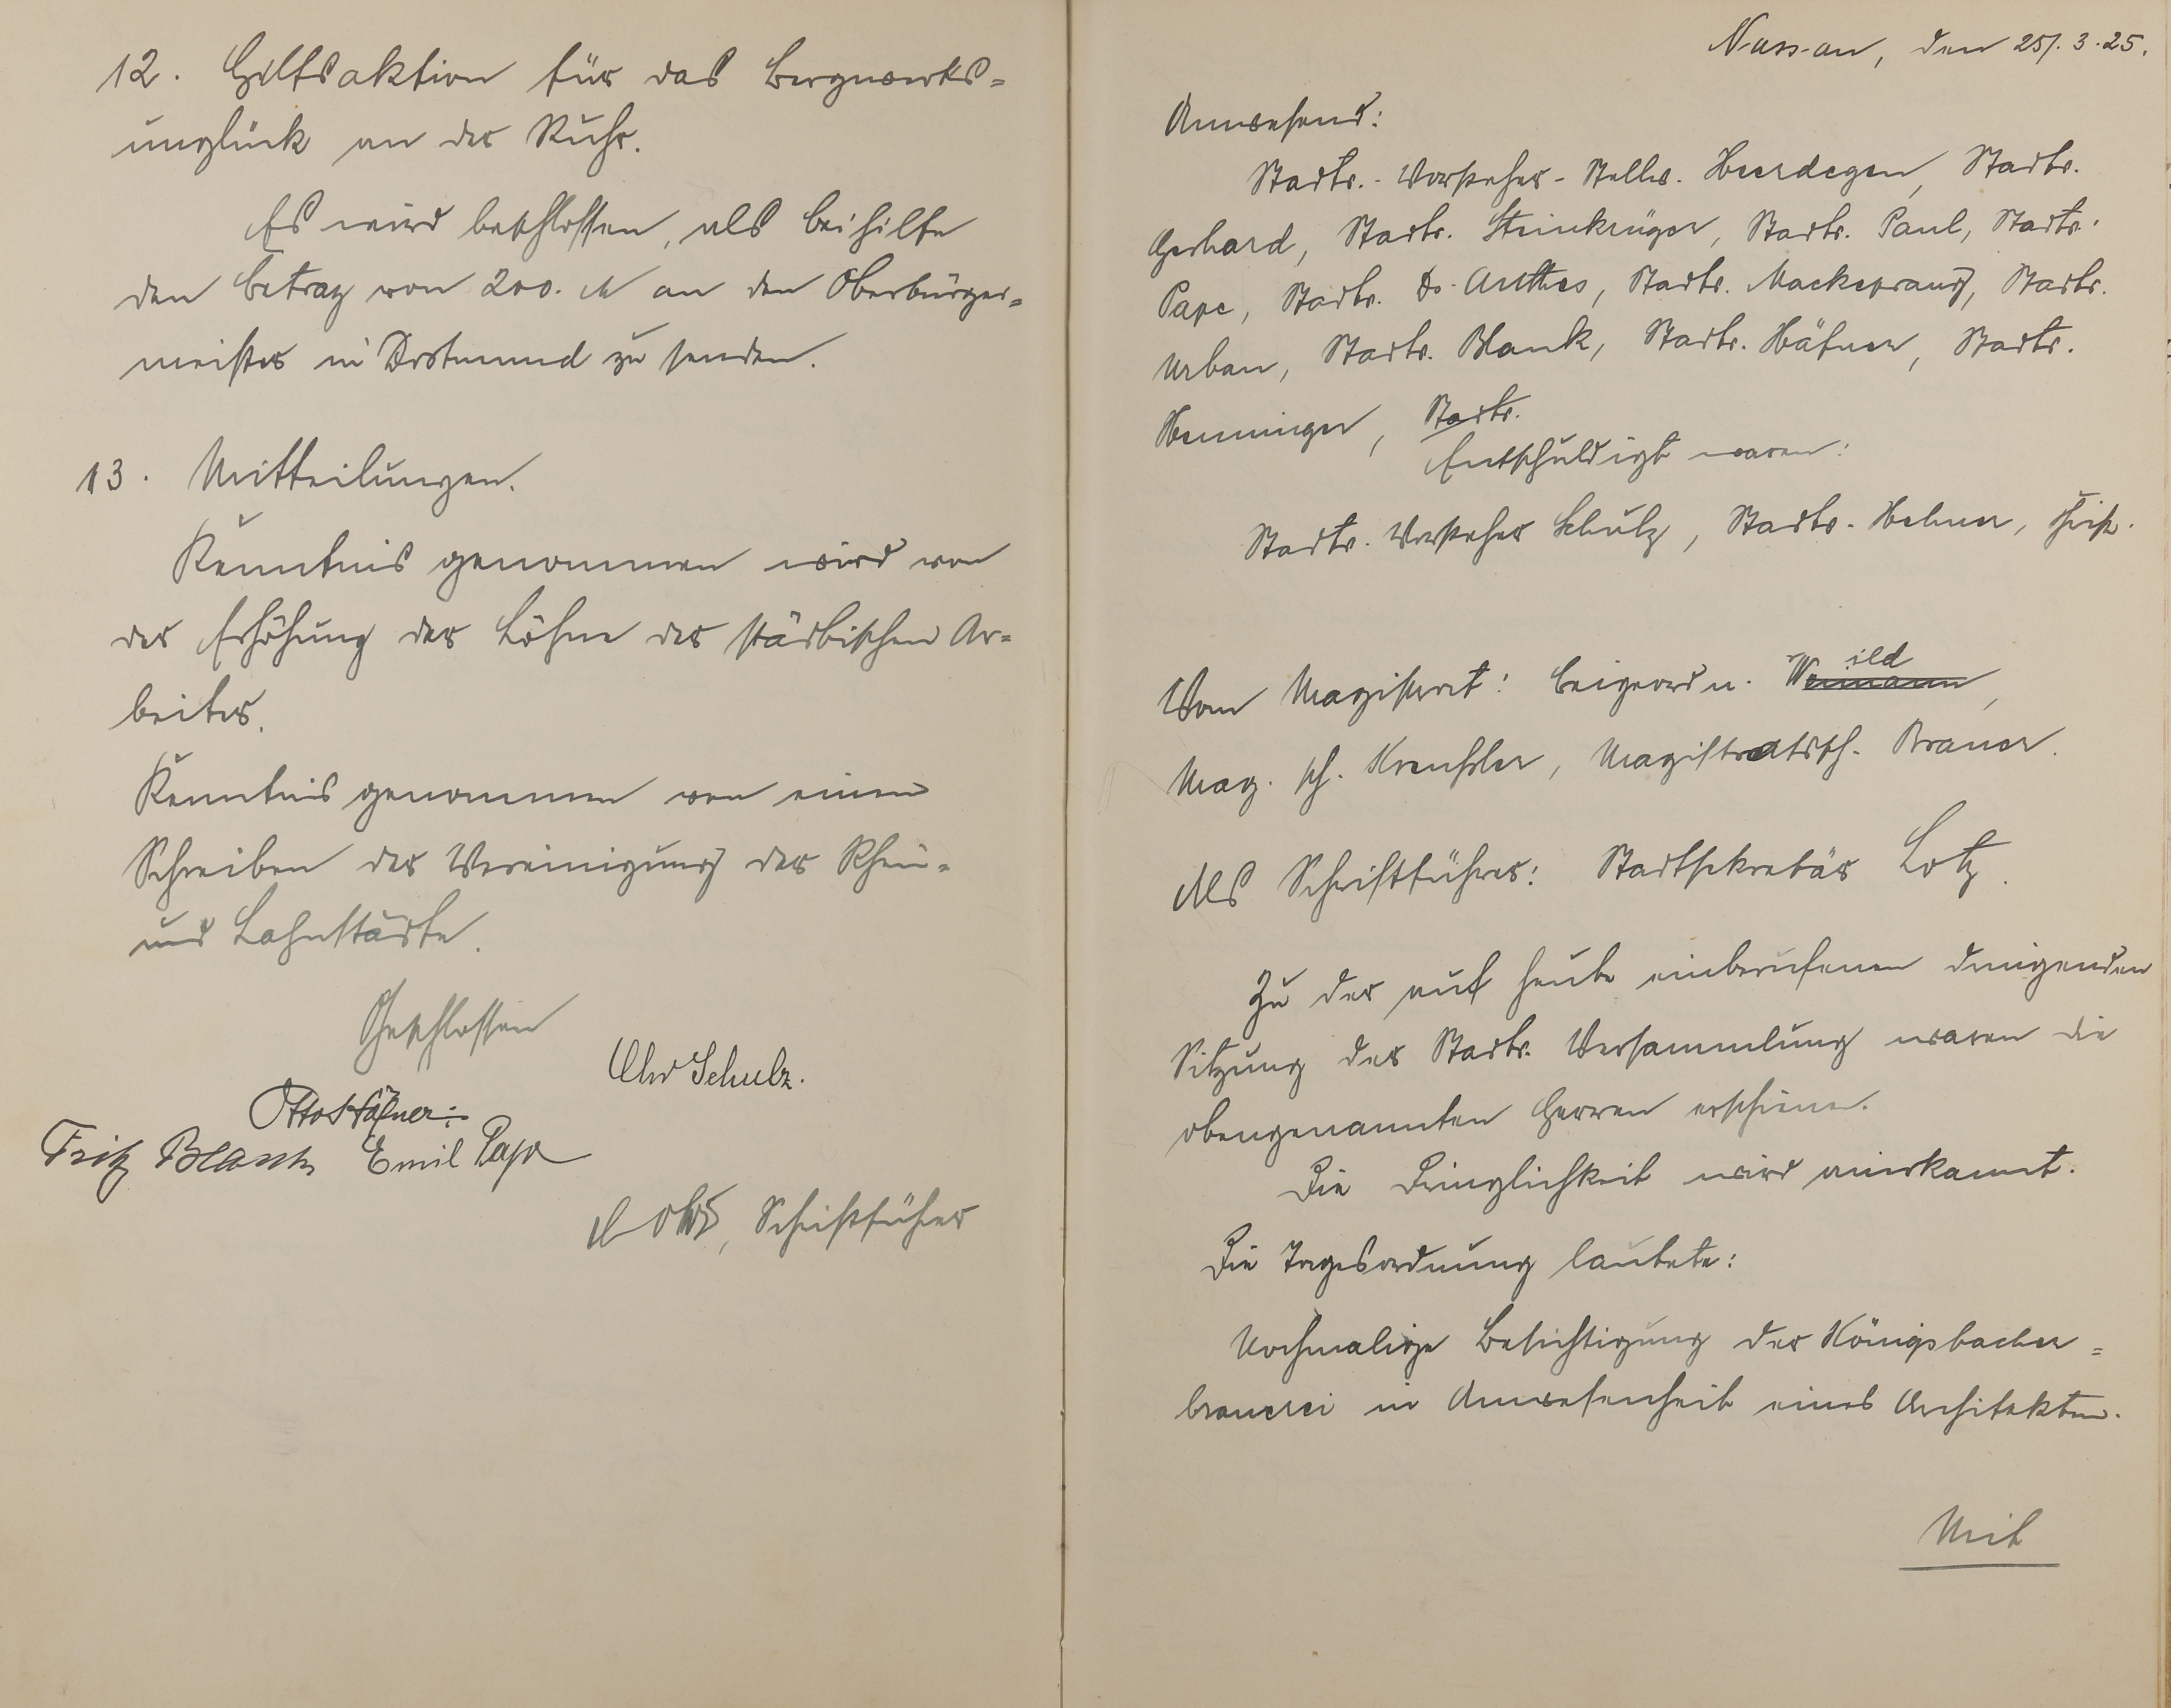 12. Hilfsaktion für das Bergwerks=
unglück an der Ruhr.
Es wird beschlossen, als Beihilfe
den Betrag von 200. M an den Oberbürger=
meister in Dortmund zu senden.
13. Mitteilungen.
Kenntnis genommen wird von
der Erhöhung der Löhne der städtischen Ar=
beiter.
Kenntnis genommen von einem
Schreiben der Vereinigung der Rhein-
und Lahnstädte.
Geschlossen
Chr Schulz.
Otto Häfner.
Fritz Blank Emil Pape
Lotz, Schriftführer
Nassau, den 25/. 3. 25.
Anwesend:
Stadtv.-Vorsteher-Stellv. Heerdegen, Stadtv.
Gerhard, Stadtv. Steinkrüger, Stadtv. Paul, Stadtv.
Pape, Stadtv. Dr. Anthes, Stadtv. Mackeprang, Stadtv.
Urban, Stadtv. Blank, Stadtv. Häfner, Stadtv.
Henninger, Stadtv.
Entschuldigt waren:
Stadtv. Vorsteher Schulz, Stadtv. Hehner,
Vom Magistrat: Beigeordn. Weimann ild,
Mag. sch. Kreußler, Magistratssch. Brauer.
Als Schriftführer: Stadtsekretär Lotz.
Zu der auf heute einberufenen dringenden
Sitzung der Stadtv. Versammlung waren die
obengenannten Herren erschienen.
Die Dringlichkeit wird anerkannt.
Die Tagesordnung lautete:
Nochmalige Besichtigung der Königsbacher=
brauerei in Anwesenheit eines Architekten.
Mit